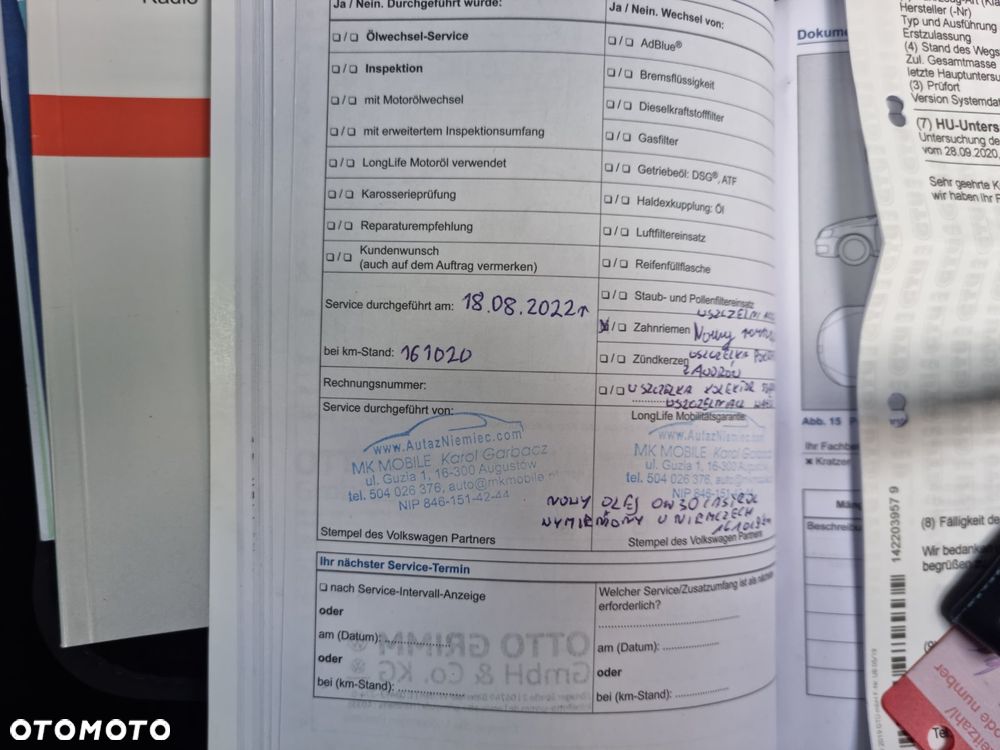 Radio
Ja / Nein. Durchgeführt wurde:
❏ / ❏ Ölwechsel-Service
❏ / ❏ Inspektion
❏ / ❏ mit Motorölwechsel
❏ / ❏ mit erweitertem Inspektionsumfang
❏ / ❏ LongLife Motoröl verwendet
❏ / ❏ Karosserieprüfung
❏ / ❏ Reparaturempfehlung
❏ / ❏ Kundenwunsch
(auch auf dem Auftrag vermerken)
Service durchgeführt am: 18.08.2022
bei km-Stand: 161020
Rechnungsnummer:
Service durchgeführt von:
www.AutazNiemiec.com
MK MOBILE Karol Garbacz
ul. Guzia 1, 16-300 Augustów
tel. 504 026 376, auto@mkmobile
NIP 846-151-42-44
Stempel des Volkswagen Partners
Ja / Nein. Wechsel von:
❏ / ❏ AdBlue®
❏ / ❏ Bremsflüssigkeit
❏ / ❏ Dieselkraftstofffilter
❏ / ❏ Gasfilter
❏ / ❏ Getriebeöl: DSG®, ATF
❏ / ❏ Haldexkupplung: Öl
❏ / ❏ Luftfiltereinsatz
❏ / ❏ Reifenfüllflasche
❏ / ❏ Staub- und Pollenfiltereinsatz
❏ / ❏ Zahnriemen Nowy
❏ / ❏ Zündkerzen USZCZELKA
❏ / ❏ USZCZELKA
LongLife Mobilitätsgarantie:
www.AutazNiemiec.com
MK MOBILE Karol Garbacz
ul. Guzia 1, 16-300 Augustów
tel. 504 026 376, auto@mkmobile
NIP 846-151
NOWY OLEJ 0W30 CASTROL
WYMIENIONY W NIEMCZECH
Stempel des Volkswagen Partners
Ihr nächster Service-Termin
❏ nach Service-Intervall-Anzeige
oder
am (Datum):
oder
bei (km-Stand):
Welcher Service/Zusatzumfang ist als nächstes
erforderlich?
am (Datum):
oder
bei (km-Stand):
OTTO GRIMM
GmbH & Co. KG
Abb. 15
Kratzer
Hersteller (-Nr)
Typ und Ausführung
Erstzulassung
(4) Stand des Wegs
Zul. Gesamtmasse
letzte Hauptuntersu
(3) Prüfort
Version Systemdat
(7) HU-Unters
Untersuchung de
vom 28.09.2020
Sehr geehrte
wir haben Ihr
142203957 9
(8) Fälligkeit de
Wir bedanken
begrüßen
ode number
Tel.
OTOMOTO